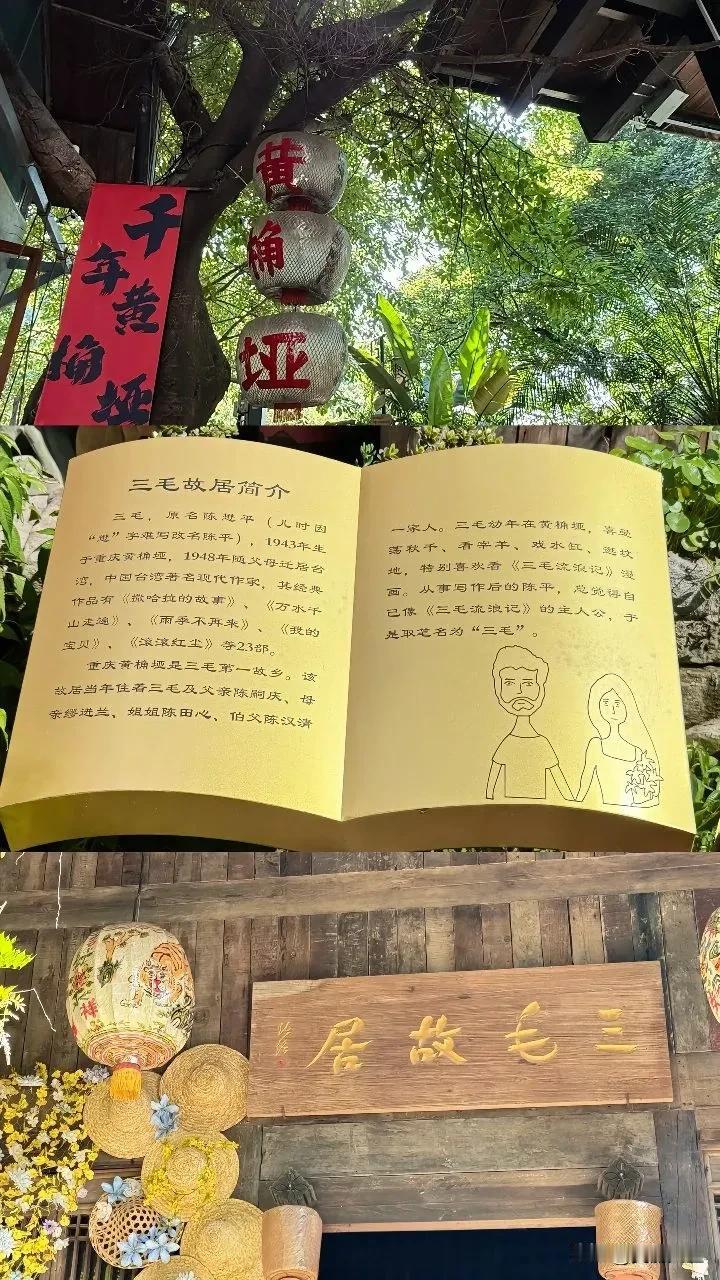 千年黄桷垭
黄桷垭
三毛故居简介
三毛，原名陈懋平（儿时因
“懋”字难写改名陈平），1943年生
于重庆黄桷垭，1948年随父母迁居台
湾，中国台湾著名现代作家，其经典
作品有《撒哈拉的故事》、《万水千
山走遍》、《雨季不再来》、《我的
宝贝》、《滚滚红尘》等23部。
重庆黄桷垭是三毛第一故乡。该
故居当年住着三毛及父亲陈嗣庆、母
亲缪进兰、姐姐陈田心、伯父陈汉清
一家人。三毛幼年在黄桷垭，喜爱
荡秋千、看宰羊、戏水缸、逛坟
地，特别喜欢看《三毛流浪记》漫
画。从事写作后的陈平，总觉得自
已像《三毛流浪记》的主人公，于
是取笔名为“三毛”。
三毛故居
祥